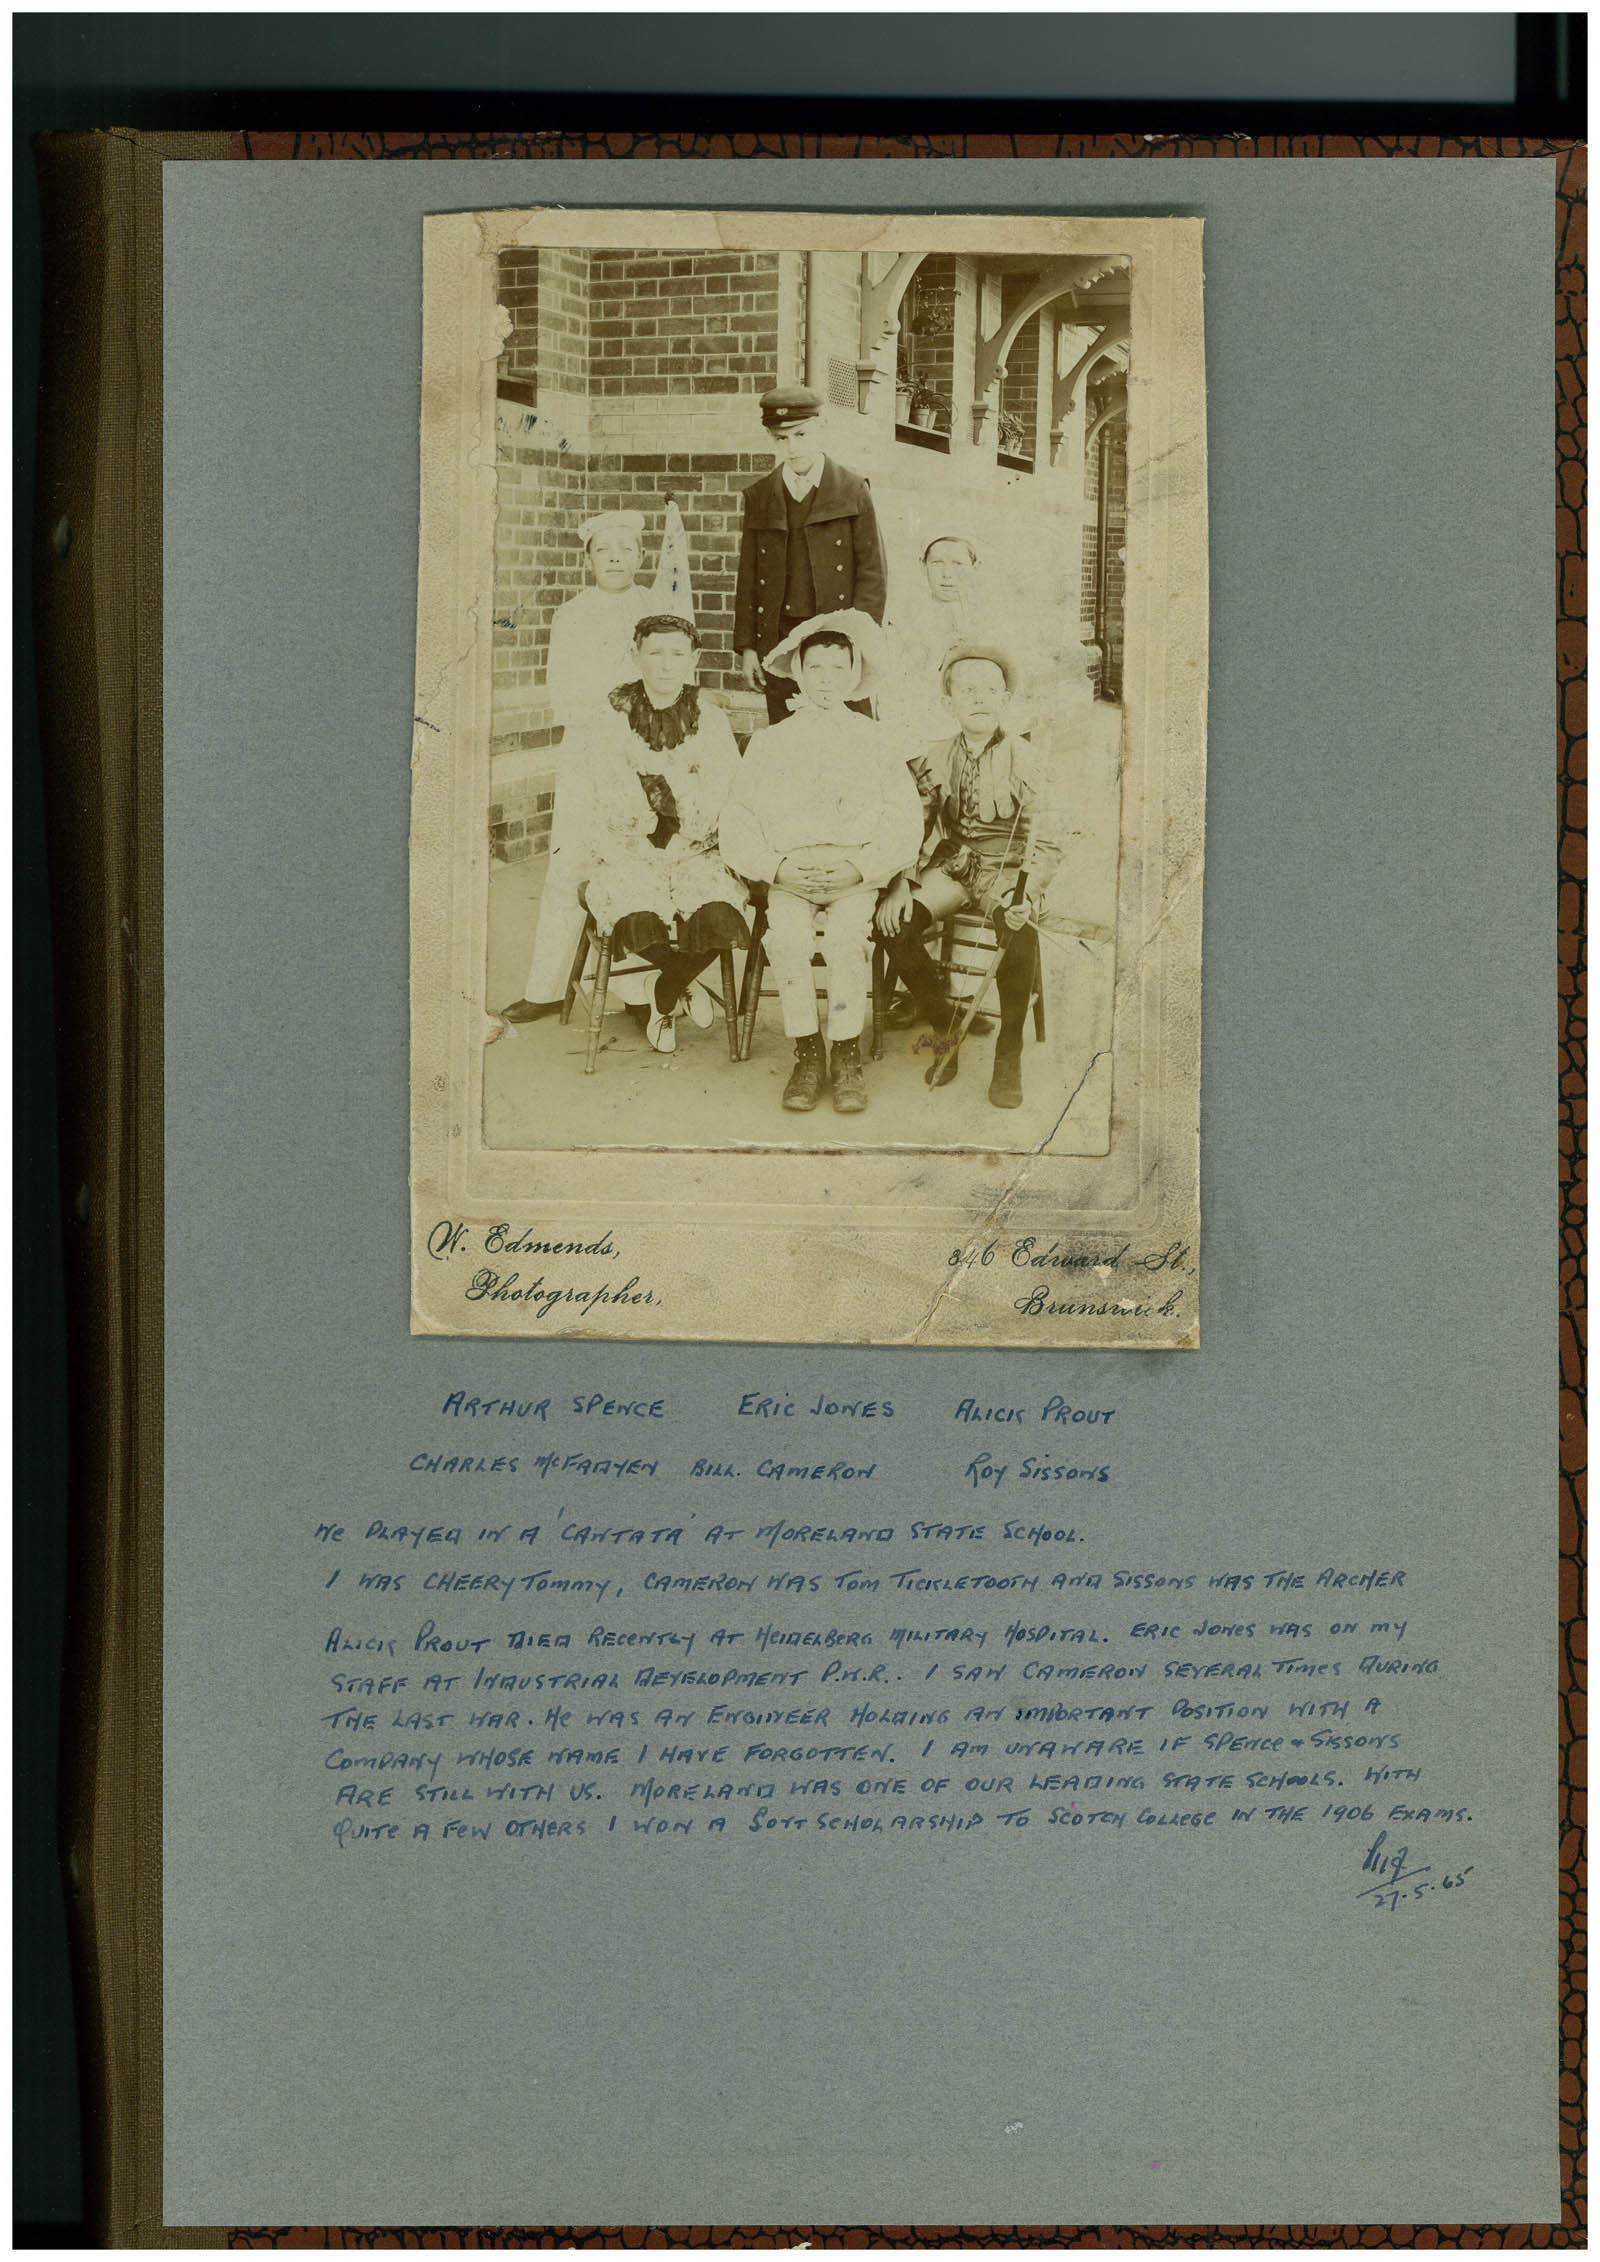 W. Edmends,
Photographer,
846 Edward St.,
Brunswick.
ARTHUR SPENCE ERIC JONES ALICK PROUT
CHARLES McFADYEN BILL. CAMERON ROY SISSONS
WE PLAYED IN A 'CANTATA' AT MORELAND STATE SCHOOL.
I WAS CHEERY TOMMY, CAMERON WAS TOM TICKLETOOTH AND SISSONS WAS THE ARCHER
ALICK PROUT DIED RECENTLY AT HEIDELBERG MILITARY HOSPITAL. ERIC JONES WAS ON MY
STAFF AT INDUSTRIAL DEVELOPMENT P.W.R.. I SAW CAMERON SEVERAL TIMES DURING
THE LAST WAR. HE WAS AN ENGINEER HOLDING AN IMPORTANT POSITION WITH A
COMPANY WHOSE NAME I HAVE FORGOTTEN. I AM UNAWARE IF SPENCE & SISSONS
ARE STILL WITH US. MORELAND WAS ONE OF OUR LEADING STATE SCHOOLS. WITH
QUITE A FEW OTHERS I WON A GOVT SCHOLARSHIP TO SCOTCH COLLEGE IN THE 1906 EXAMS.
27.5.65